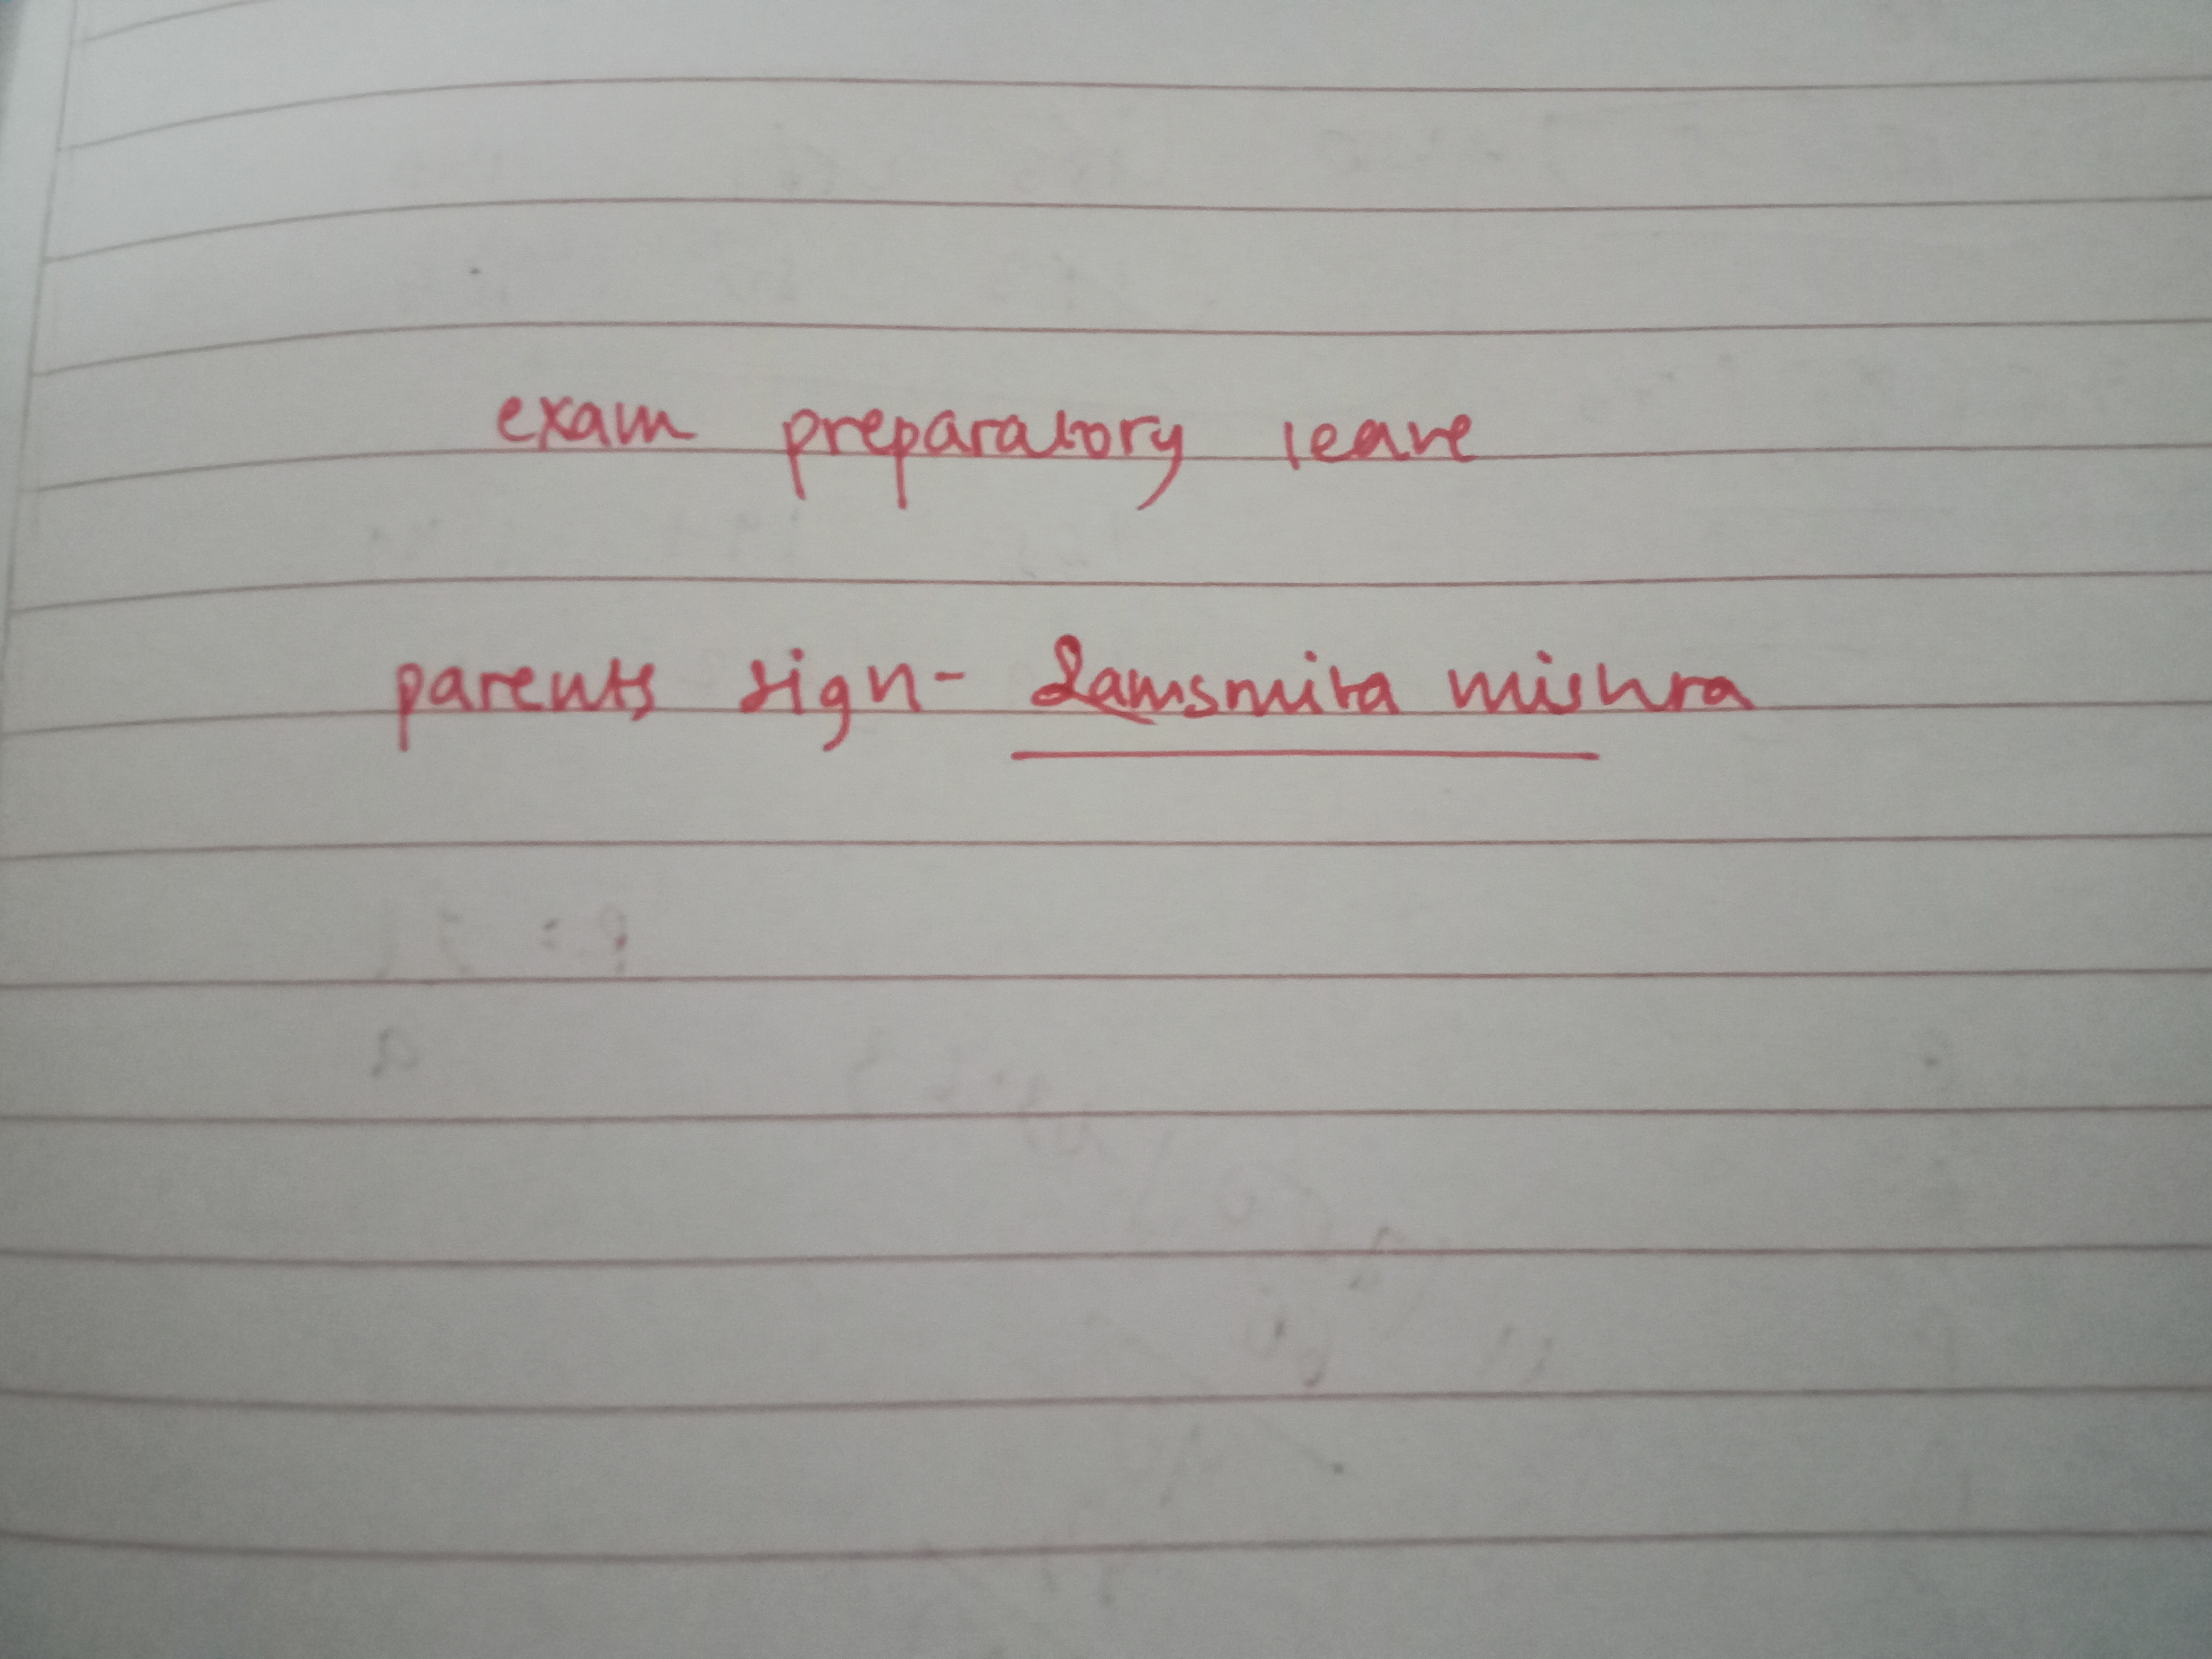 exam preparatory leave
parents sign- mishra